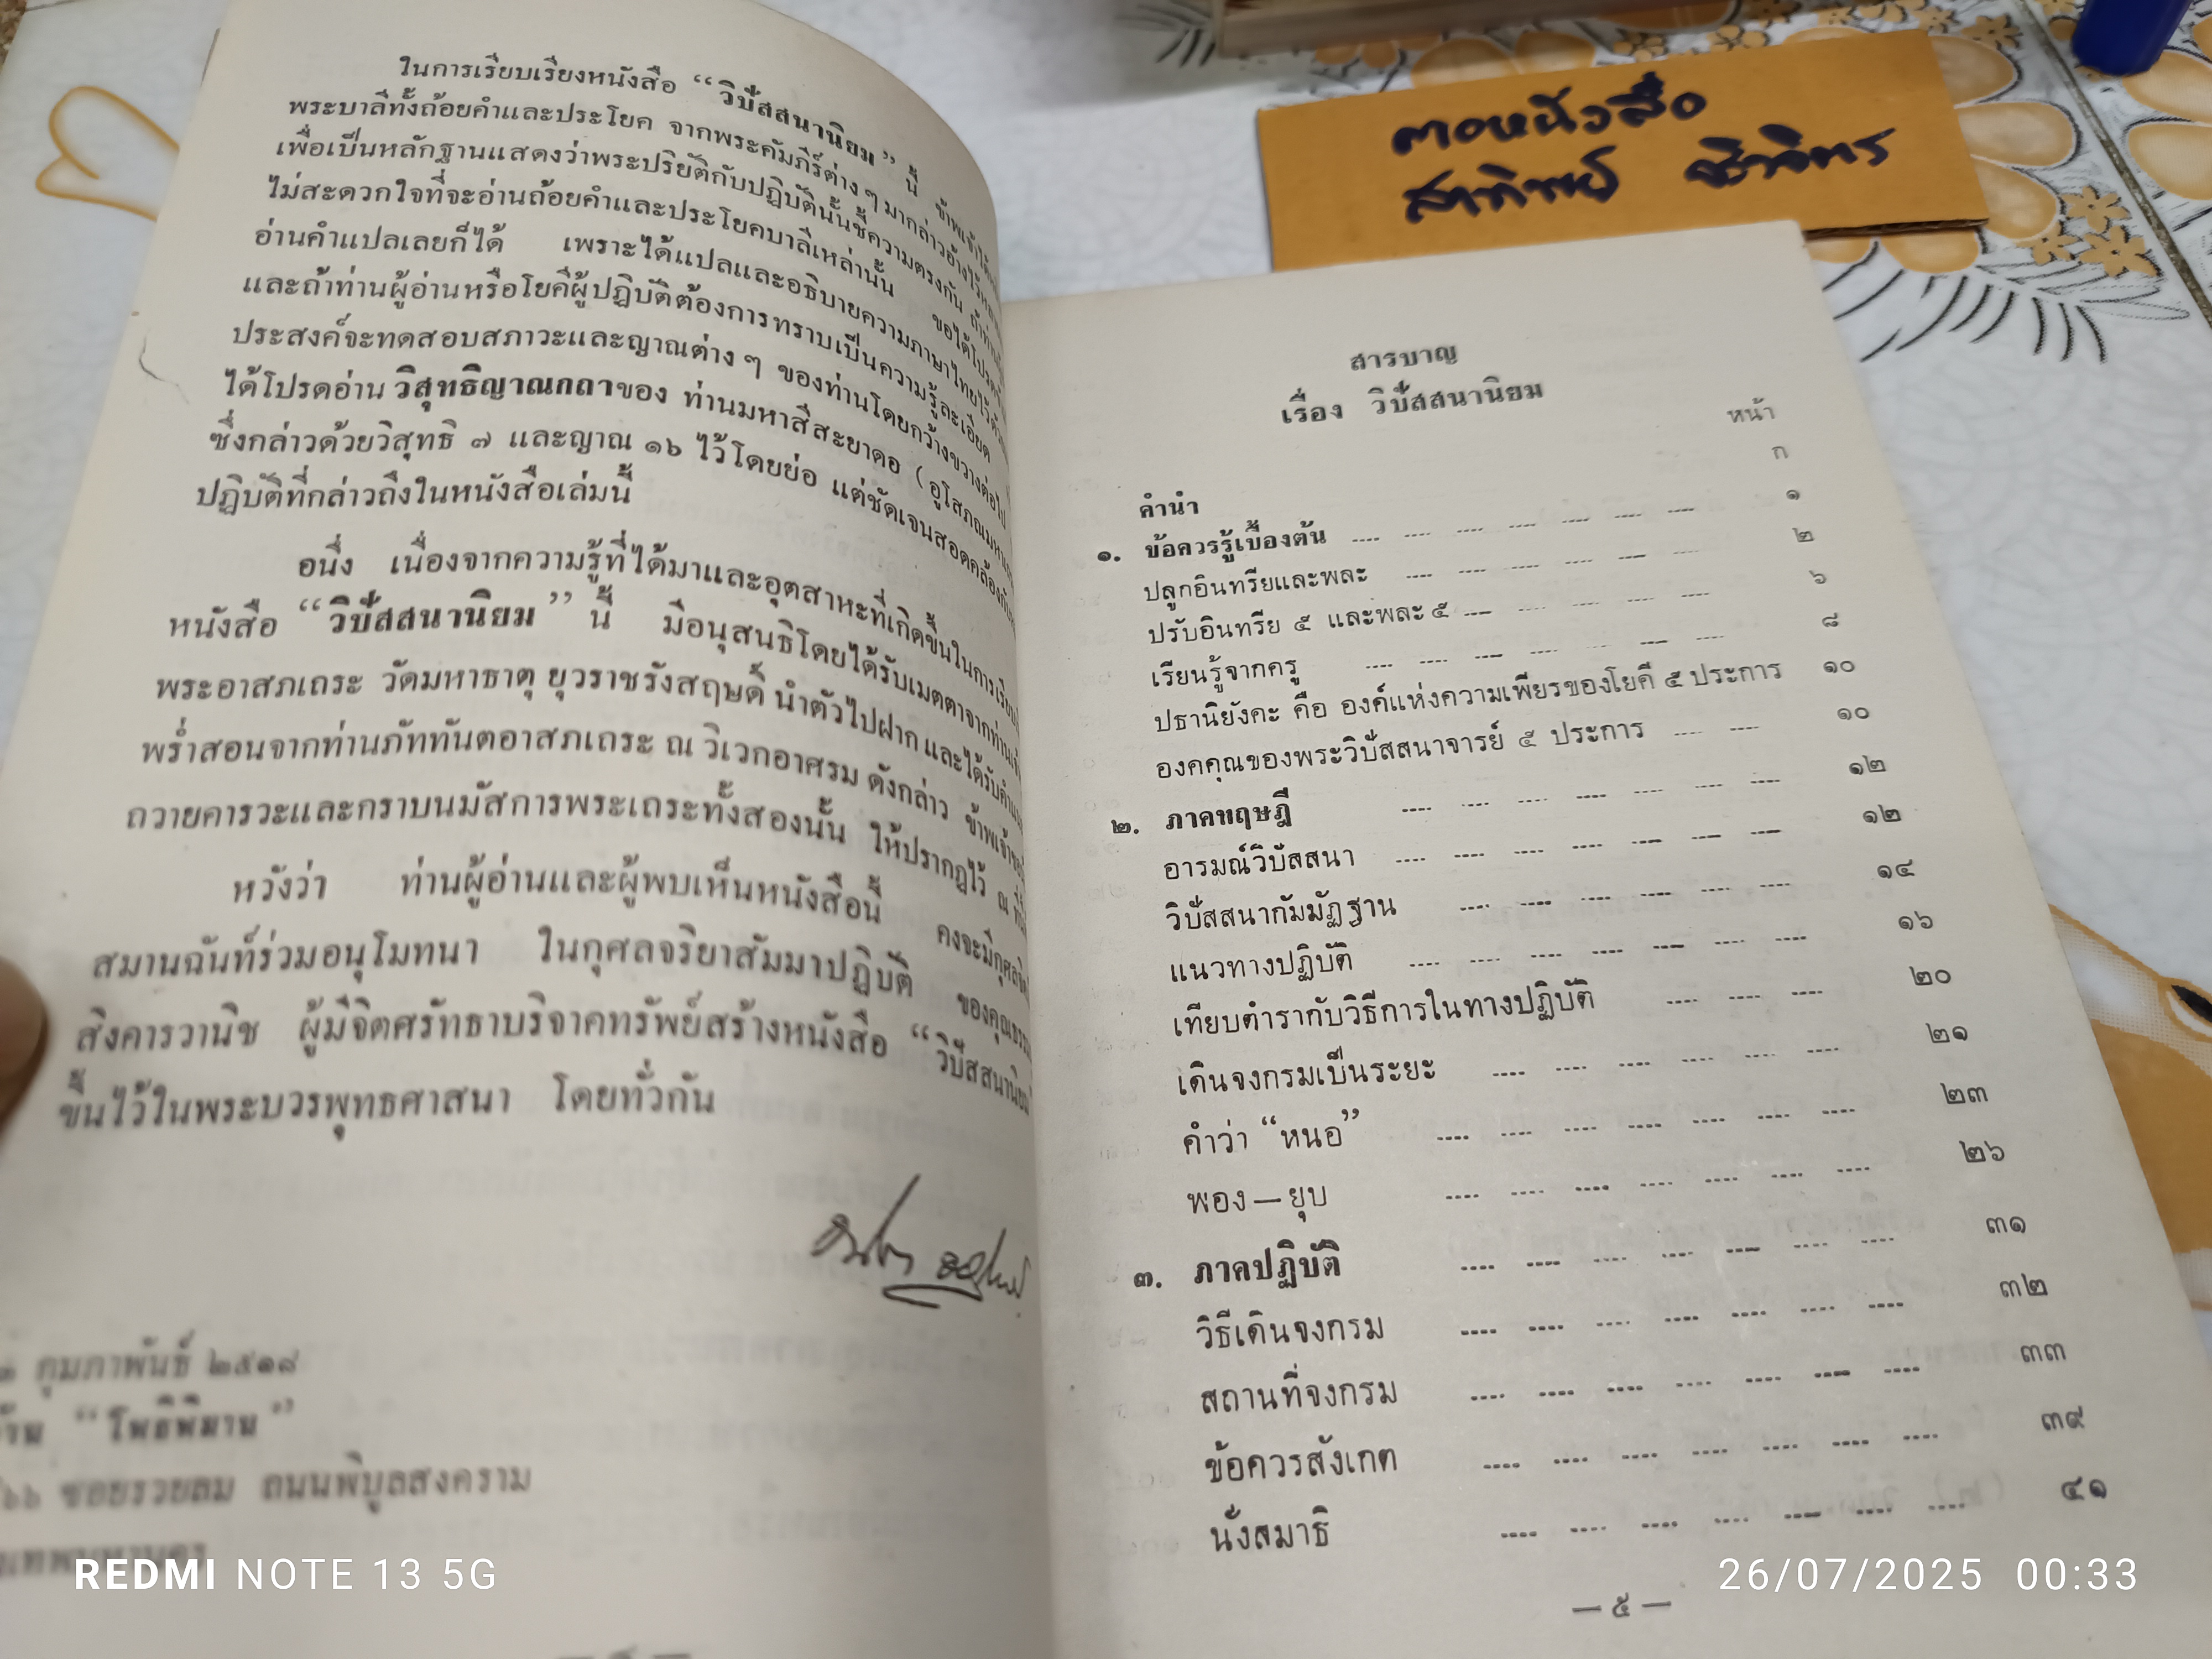 ในการเรียบเรียงหนังสือ “วิปัสสนานิยม” นี้ ข้าพเจ้าได้
พระบาลีทั้งถ้อยคำและประโยค จากพระคัมภีร์ต่าง ๆ มากล่าวอ้างไว้
เพื่อเป็นหลักฐานแสดงว่าพระปริยัติกับปฏิบัตินั้นชี้ความตรงกัน ถ้าท่าน
ไม่สะดวกใจที่จะอ่านถ้อยคำและประโยคบาลีเหล่านั้น ขอได้โปรด
อ่านคำแปลเลยก็ได้ เพราะได้แปลและอธิบายความภาษาไทยไว้ด้วย
และถ้าท่านผู้อ่านหรือโยคีผู้ปฏิบัติต้องการทราบเป็นความรู้ละเอียด
ประสงค์จะทดสอบสภาวะและญาณต่าง ๆ ของท่านโดยกว้างขวางต่อไป
ได้โปรดอ่าน วิสุทธิญาณกถาของ ท่านมหาสีสะยาดอ (อูโสภณมหาเถระ
ซึ่งกล่าวด้วยวิสุทธิ ๗ และญาณ ๑๖ ไว้โดยย่อ แต่ชัดเจนสอดคล้องกับ
ปฏิบัติที่กล่าวถึงในหนังสือเล่มนี้
อนึ่ง เนื่องจากความรู้ที่ได้มาและอุตสาหะที่เกิดขึ้นในการเรียบ
หนังสือ “วิปัสสนานิยม” นี้ มีอนุสนธิโดยได้รับเมตตาจากท่าน
พระอาสภเถระ วัดมหาธาตุ ยุวราชรังสฤษดิ์ นำตัวไปฝาก และได้รับคำ
พร่ำสอนจากท่านภัททันตอาสภเถระ ณ วิเวกอาศรม ดังกล่าว ข้าพเจ้าขอ
ถวายคารวะและกราบนมัสการพระเถระทั้งสองนั้น ให้ปรากฏไว้ ณ ที่นี้
หวังว่า ท่านผู้อ่านและผู้พบเห็นหนังสือนี้ คงจะมีกุศลจิต
สมานฉันท์ร่วมอนุโมทนา ในกุศลจริยาสัมมาปฏิบัติ ของคุณ
สิงคารวานิช ผู้มีจิตศรัทธาบริจาคทรัพย์สร้างหนังสือ “วิปัสสนานิยม
ขึ้นไว้ในพระบวรพุทธศาสนา โดยทั่วกัน
กุมภาพันธ์ ๒๕๑๘
“โพธิพิมาน”
ซอยรวยลม ถนนพิบูลสงคราม
ตอหนังสือ
สาทิพย์ ชีวจิตร
สารบาญ
เรื่อง วิปัสสนานิยม
หน้า
คำนำ ก
๑. ข้อควรรู้เบื้องต้น .... .... .... .... .... .... ๑
ปลูกอินทรียและพละ .... .... .... .... .... .... ๒
ปรับอินทรีย ๕ และพละ ๕ .... .... .... .... .... ๖
เรียนรู้จากครู .... .... .... .... .... .... .... ๘
ปธานิยังคะ คือ องค์แห่งความเพียรของโยคี ๕ ประการ ๑๐
องคคุณของพระวิปัสสนาจารย์ ๕ ประการ .... .... ๑๐
๒. ภาคทฤษฎี .... .... .... .... .... .... .... ๑๒
อารมณ์วิปัสสนา .... .... .... .... .... .... .... ๑๒
วิปัสสนากัมมัฏฐาน .... .... .... .... .... .... ๑๔
แนวทางปฏิบัติ .... .... .... .... .... .... .... ๑๖
เทียบตำรากับวิธีการในทางปฏิบัติ .... .... .... ๒๐
เดินจงกรมเป็นระยะ .... .... .... .... .... .... ๒๑
คำว่า “หนอ” .... .... .... .... .... .... .... ๒๓
พอง — ยุบ .... .... .... .... .... .... .... ๒๖
๓. ภาคปฏิบัติ .... .... .... .... .... .... .... ๓๑
วิธีเดินจงกรม .... .... .... .... .... .... .... ๓๒
สถานที่จงกรม .... .... .... .... .... .... .... ๓๓
ข้อควรสังเกต .... .... .... .... .... .... .... ๓๙
นั่งสมาธิ .... .... .... .... .... .... .... ๔๑
— ๕ —
REDMI NOTE 13 5G
26/07/2025 00:33